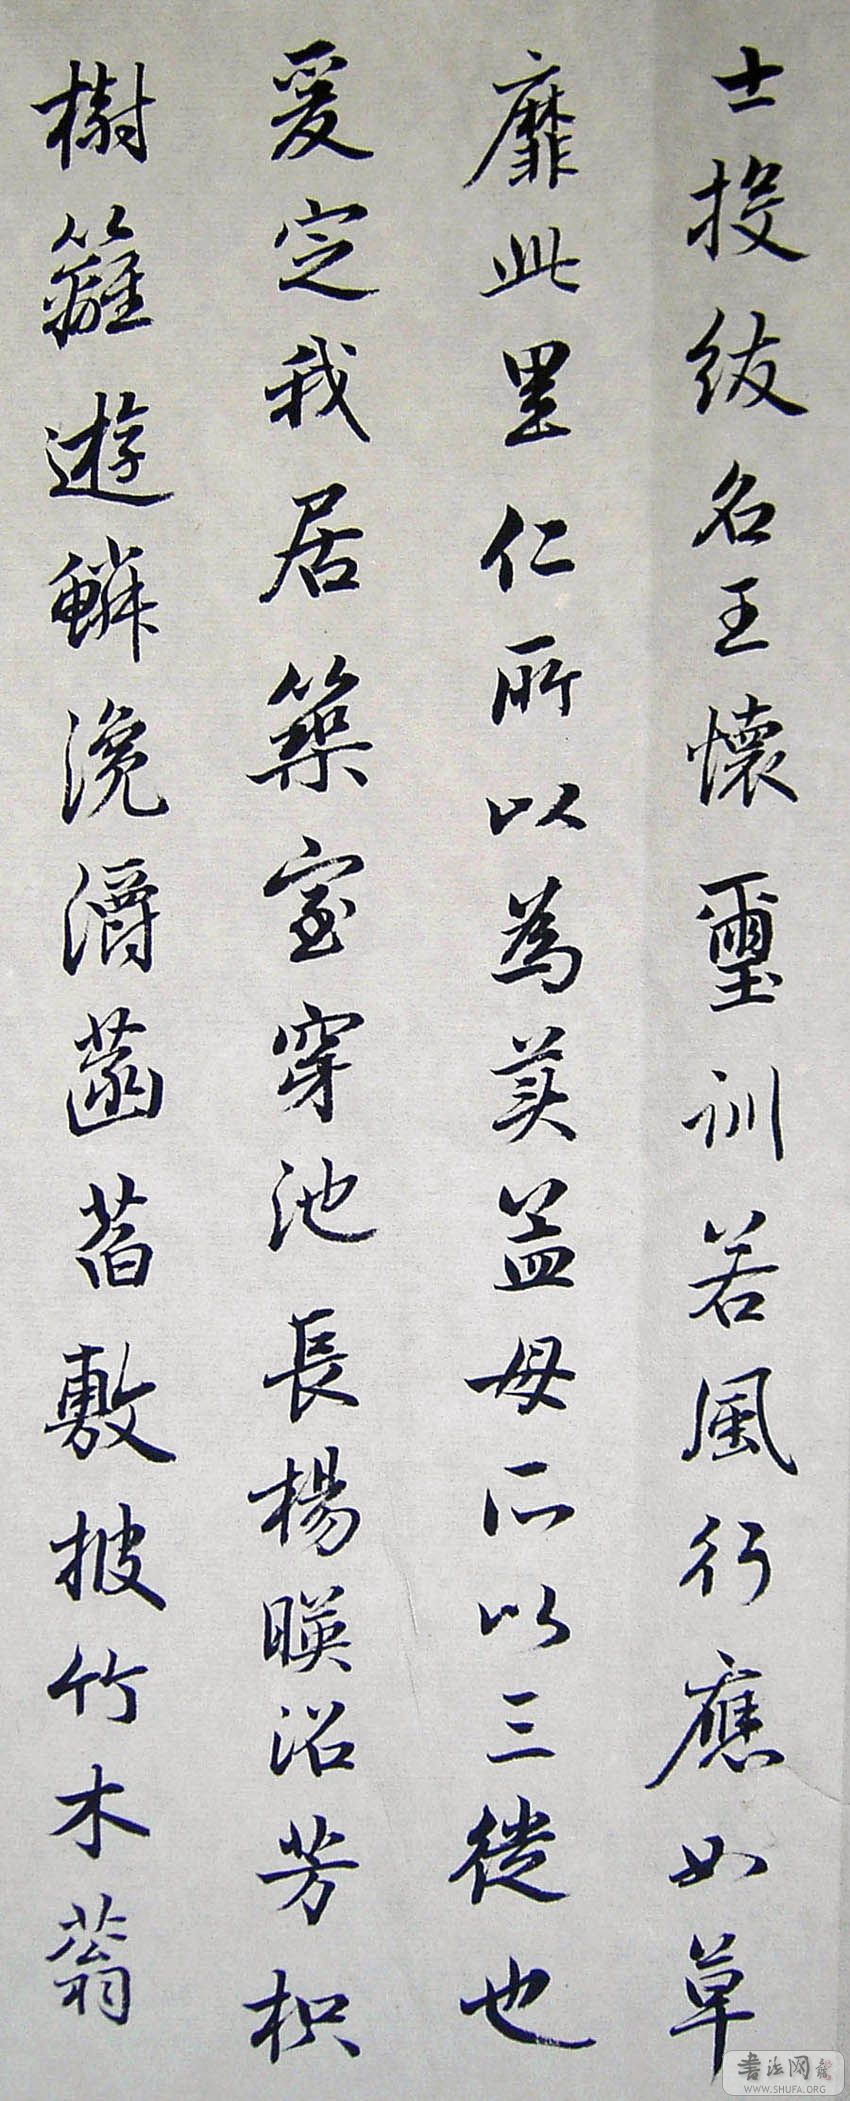 士投紱名王懷璽訓若風行應如草
靡此里仁所以為美孟母所以三徙也
爰定我居築室穿池長楊映沼芳枳
樹籬遊鱗瀺灂菡萏敷披竹木蓊
書法网
WWW.SHUFA.ORG